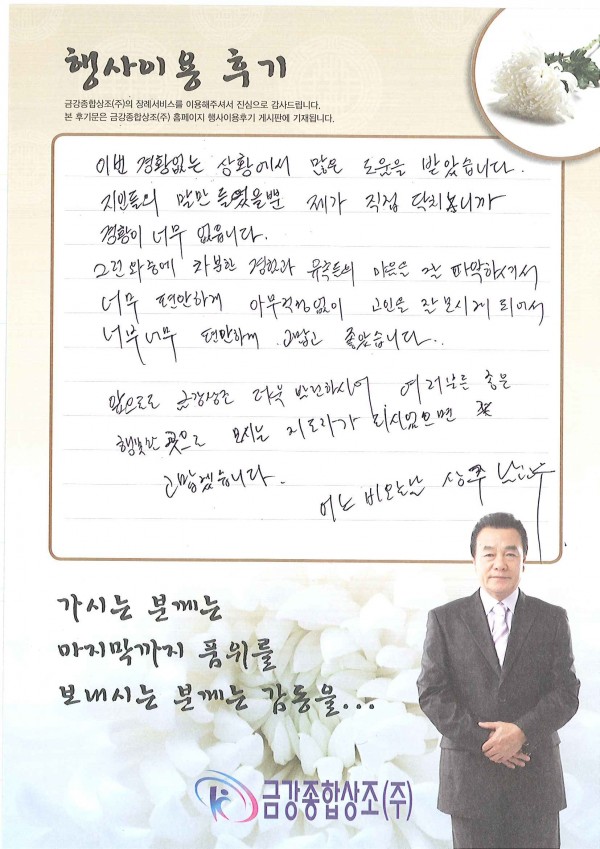 행사이용 후기
금강종합상조(주)의 장례서비스를 이용해주셔서 진심으로 감사드립니다.
본 후기문은 금강종합상조(주) 홈페이지 행사이용후기 게시판에 기재됩니다.
이번 경황없는 상황에서 많은 도움을 받았습니다.
지인들의 말만 들었을뿐 제가 직접 닥치보니까
경황이 너무 없읍니다.
그런 와중에 차분한 경험과 유족들의 마음을 잘 파악하셔서
너무 편안하게 아무걱정없이 고인을 잘 모시게 되어서
너무너무 편안하게 고맙고 좋았습니다..
앞으로도 금강상조 더욱 발전하시어 여러분을 좋은
행복한 곳으로 모시는 지도자가 되시었으면
고맙겠습니다.
어느 비오는날 상주
가시는 분께는
마지막까지 품위를
보내시는 분께는 감동을...
금강종합상조(주)